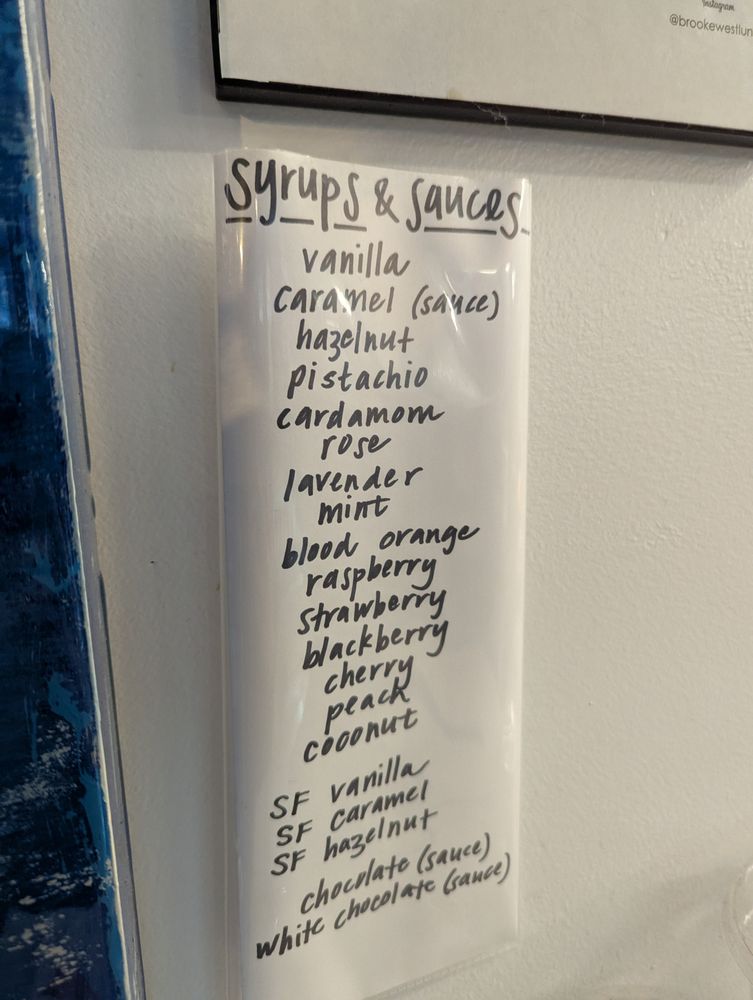 Instagram
@brookewestlun
syrups & sauces
vanilla
caramel (sauce)
hazelnut
pistachio
cardamom
rose
lavender
mint
blood orange
raspberry
strawberry
blackberry
cherry
peach
coconut
SF vanilla
SF caramel
SF hazelnut
chocolate (sauce)
white chocolate (sauce)